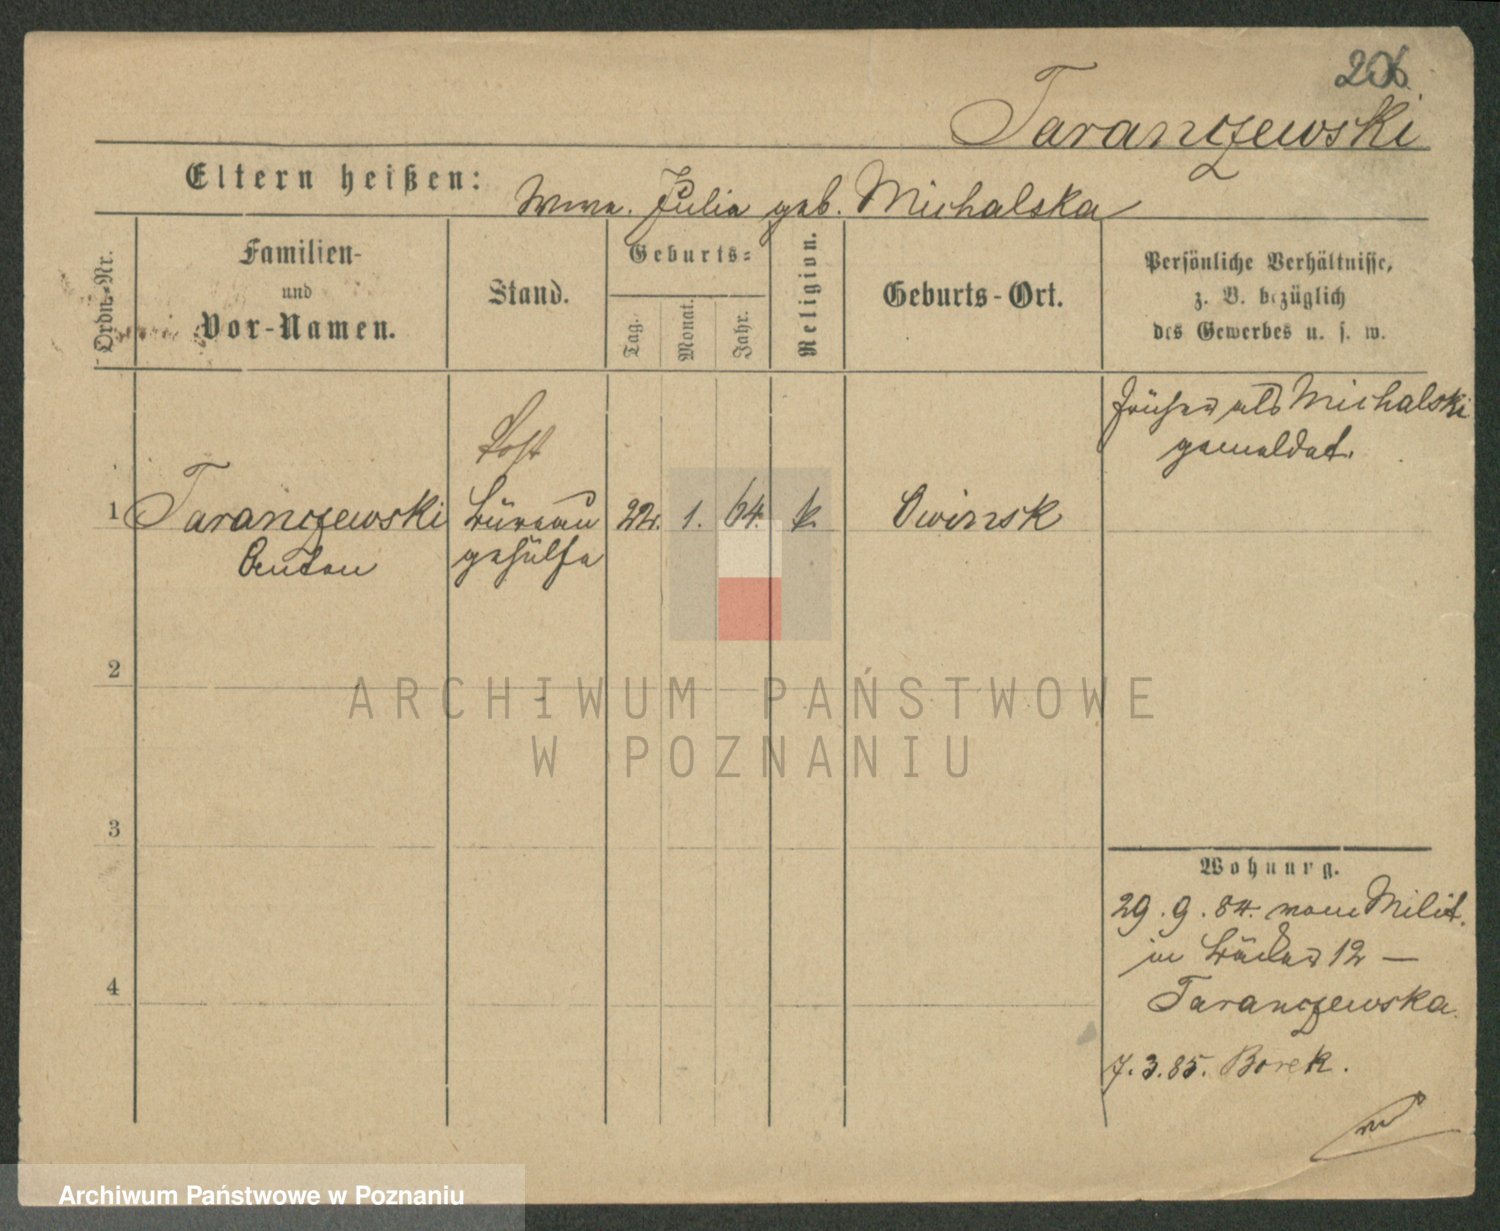 206.
Taranczewski
Eltern heißen: Wwe. Julia geb. Michalska
Ordn.-Nr.
Familien-
und
Vor-Namen.
Stand.
Geburts-
Tag.
Monat.
Jahr.
Religion.
Geburts-Ort.
Persönliche Verhältnisse,
z. B. bezüglich
des Gewerbes u. s. w.
früher als Michalski
gemeldet.
Post
1 Taranczewski Büreau 22. 1. 64. k. Owinsk
Anton gehülfe
2
3
4
Wohnung.
29. 9. 84. vom Milit.
in 12 —
Taranczewska.
7. 3. 85. Borek.
ARCHIWUM PAŃSTWOWE
W POZNANIU
Archiwum Państwowe w Poznaniu